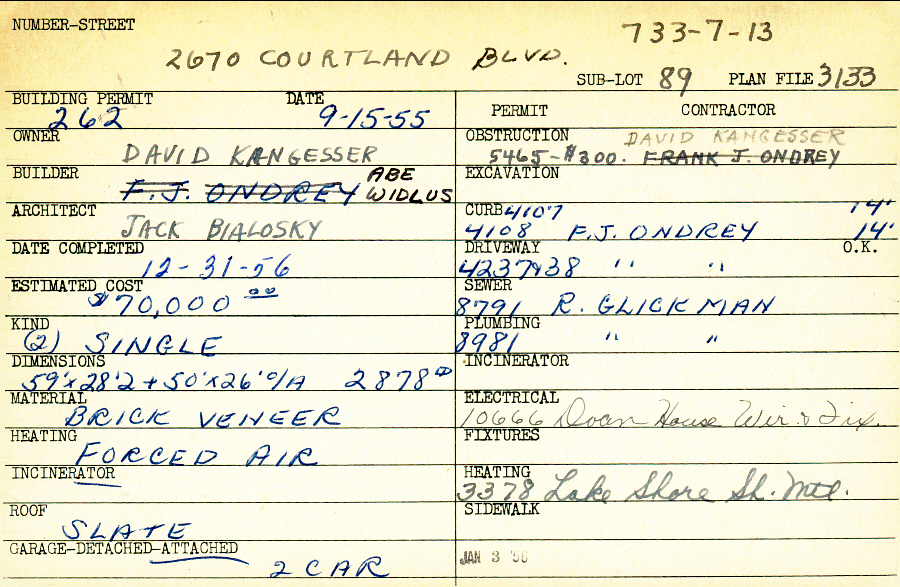 NUMBER-STREET
733-7-13
2670 COURTLAND BLVD.
SUB-LOT 89 PLAN FILE 3133
BUILDING PERMIT DATE
262 9-15-55
OWNER
DAVID KANGESSER
BUILDER
F.J. ONDREY ABE WIDLUS
ARCHITECT
JACK BIALOSKY
DATE COMPLETED
12-31-56
ESTIMATED COST
$70,000 00
KIND
(2) SINGLE
DIMENSIONS
59'x28'2 + 50'x26' O/A 2878
MATERIAL
BRICK VENEER
HEATING
FORCED AIR
INCINERATOR
ROOF
SLATE
GARAGE-DETACHED-ATTACHED
2 CAR
PERMIT CONTRACTOR
OBSTRUCTION DAVID KANGESSER
5465-$300. FRANK J. ONDREY
EXCAVATION
CURB 4107 14'
4108 F.J. ONDREY 14'
DRIVEWAY O.K.
4237+38 " "
SEWER
8791 R. GLICKMAN
PLUMBING
8981 " "
INCINERATOR
ELECTRICAL
10666 Doan House Wir. & Fix.
FIXTURES
HEATING
3378 Lake Shore Sh. Mtl.
SIDEWALK
JAN 3 '56